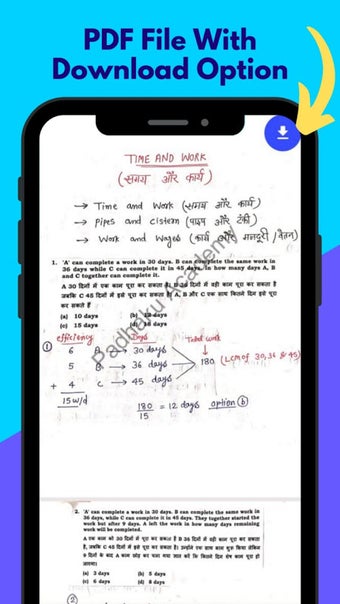 PDF File With
Download Option
TIME AND WORK
(समय और कार्य)
→ Time and Work (समय और कार्य)
→ Pipes and Cistern (पाइप और टंकी)
→ Work and Wages (कार्य और मजदूरी/वेतन)
1. 'A' can complete a work in 30 days. B can complete the same work in
36 days while C can complete it in 45 days. in how many days A, B
and C together can complete it.
A 30 दिनों में एक काम पूरा कर सकता है। B 36 दिनों में वही काम पूरा कर सकता है
जबकि C 45 दिनों में इसे पूरा कर सकता है। A, B और C एक साथ कितने दिन इसे पूरा
कर सकते हैं
(a) 10 days (b) 12 days
(c) 15 days (d) 18 days
① efficiency Days Total work
6 A → 30 days
5 B → 36 days 180 (LCM of 30, 36 & 45)
+ 4 C → 45 days
15 w/d
180/15 = 12 days option ⓑ
Padhaku Academy
2. 'A' can complete a work in 30 days. B can complete the same work in
36 days, while C can complete it in 45 days. They together started the
work but after 9 days. A left the work in how many days remaining
work will be completed.
A एक काम को 30 दिनों में पूरा कर सकता है B 36 दिनों में वही काम पूरा कर सकता
है, जबकि C 45 दिनों में इसे पूरा कर सकता है। उन्होंने एक साथ काम शुरू किया लेकिन
9 दिनों के बाद A काम छोड़ कर चला गया ज्ञात करें कि कितने दिन शेष काम पूरा हो
जाएगा।
(a) 3 days (b) 5 days
(c) 6 days (d) 8 days
②